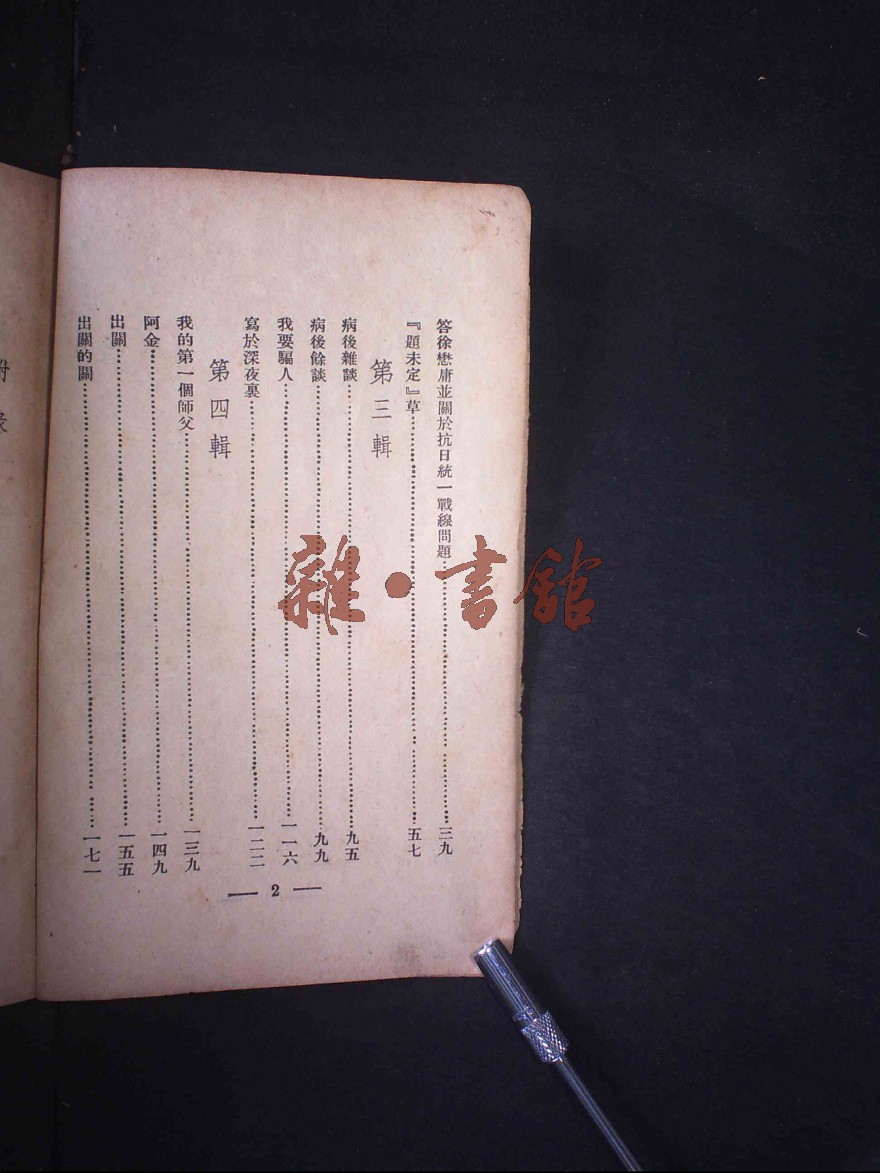 答徐懋庸並關於抗日統一戰線問題……三九
『題未定』草……五七
第三輯
病後雜談……九五
病後餘談……九九
我要騙人……一一六
寫於深夜裏……一二二
第四輯
我的第一個師父……一三九
阿金……一四九
出關……一五五
出關的關……一七一
— 2 —
雜·書館